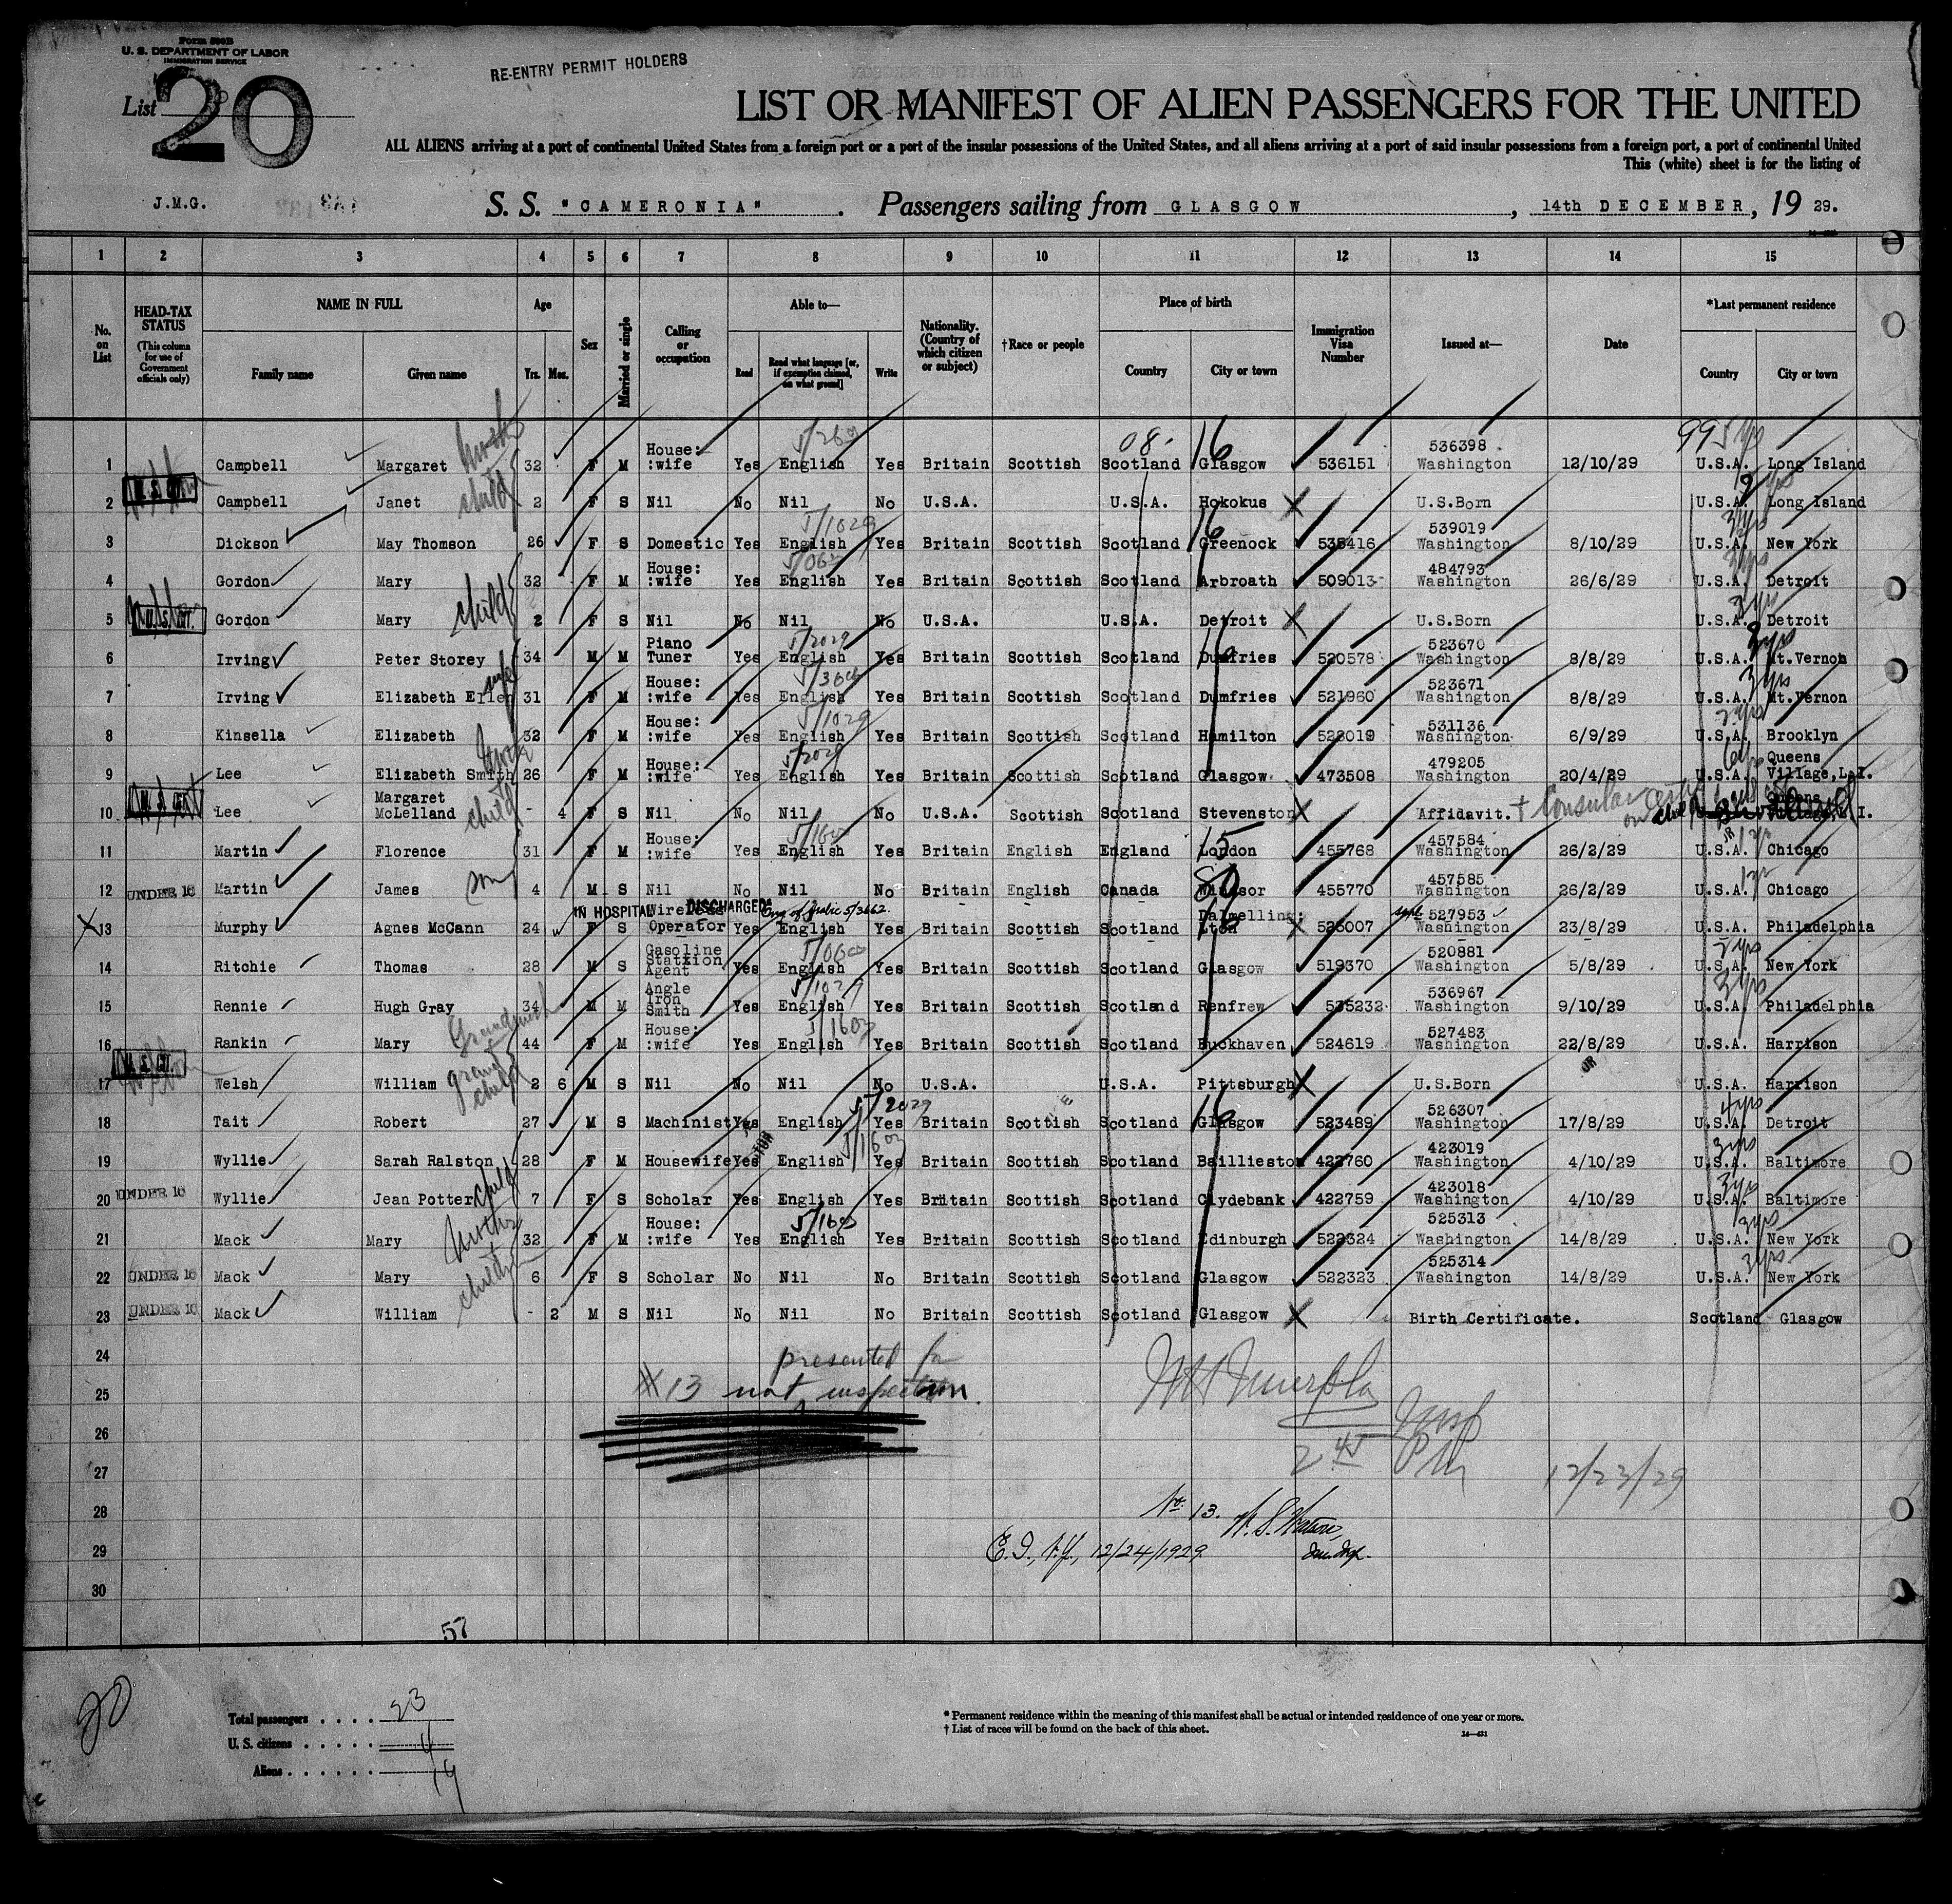 Form 500B
U. S. DEPARTMENT OF LABOR
IMMIGRATION SERVICE
RE-ENTRY PERMIT HOLDERS
List 20
LIST OR MANIFEST OF ALIEN PASSENGERS FOR THE UNITED
ALL ALIENS arriving at a port of continental United States from a foreign port or a port of the insular possessions of the United States, and all aliens arriving at a port of said insular possessions from a foreign port, a port of continental United
This (white) sheet is for the listing of
J.M.G. S. S. "CAMERONIA". Passengers sailing from GLASGOW, 14th DECEMBER, 19 29.
1 2 3 4 5 6 7 8 9 10 11 12 13 14 15
No. on List
HEAD-TAX STATUS (This column for use of Government officials only)
NAME IN FULL
Family name Given name
Age
Yrs. Mos.
Sex
Married or single
Calling or occupation
Able to—
Read Read what language [or, if exemption claimed, on what ground] Write
Nationality. (Country of which citizen or subject)
†Race or people
Place of birth
Country City or town
Immigration Visa Number
Issued at—
Date
*Last permanent residence
Country City or town
08· 16 99 5 yrs
1 Campbell Margaret 32 F M House: :wife Yes English Yes Britain Scottish Scotland Glasgow 536151 536398 Washington 12/10/29 U.S.A. Long Island
2 Campbell Janet child 2 F S Nil No Nil No U.S.A. U.S.A. Hokokus X U.S.Born U.S.A. Long Island
3 Dickson May Thomson 26 F S Domestic Yes English 5/1029 Yes Britain Scottish Scotland Greenock 16 535416 539019 Washington 8/10/29 U.S.A. New York
4 Gordon Mary 32 F M House: :wife Yes English Yes Britain Scottish Scotland Arbroath 509013 484793 Washington 26/6/29 U.S.A. Detroit 3yrs
5 Gordon Mary child 2 F S Nil No Nil No U.S.A. U.S.A. Detroit X U.S.Born U.S.A. Detroit 3yrs
6 Irving Peter Storey 34 M M Piano Tuner Yes English 5/2029 Yes Britain Scottish Scotland Dumfries 16 520578 523670 Washington 8/8/29 U.S.A. Mt.Vernon
7 Irving Elizabeth Ellen wife 31 F M House: :wife Yes English Yes Britain Scottish Scotland Dumfries 521960 523671 Washington 8/8/29 U.S.A. Mt.Vernon 3yrs
8 Kinsella Elizabeth 32 F M House: :wife Yes English 5/1029 Yes Britain Scottish Scotland Hamilton 528019 531136 Washington 6/9/29 U.S.A. Brooklyn
9 Lee Elizabeth Smith 26 F M House: :wife Yes English 5/2029 Yes Britain Scottish Scotland Glasgow 473508 479205 Washington 20/4/29 U.S.A. Queens Village,L.I.
10 Lee Margaret McLelland child - 4 F S Nil No Nil No U.S.A. Scottish Scotland Stevenston X Affidavit. + Consular
11 Martin Florence 31 F M House: :wife Yes English Yes Britain English England London 15 455768 457584 Washington 26/2/29 U.S.A. Chicago
12 UNDER 16 Martin James son 4 M S Nil No Nil No Britain English Canada Windsor 80 455770 457585 Washington 26/2/29 U.S.A. Chicago
IN HOSPITAL DISCHARGED
X 13 Murphy Agnes McCann 24 F S Wireless Operator Yes English Yes Britain Scottish Scotland Dalmelling: :ton 16 X 526007 527953 Washington 23/8/29 U.S.A. Philadelphia
14 Ritchie Thomas 28 M S Gasoline Statxion Agent Yes English Yes Britain Scottish Scotland Glasgow 519370 520881 Washington 5/8/29 U.S.A. New York
15 Rennie Hugh Gray 34 M M Angle Iron Smith Yes English 5/1029 Yes Britain Scottish Scotland Renfrew 535232 536967 Washington 9/10/29 U.S.A. Philadelphia 3yrs
16 Rankin Mary 44 F M House: :wife Yes English Yes Britain Scottish Scotland Buckhaven 524619 527483 Washington 22/8/29 U.S.A. Harrison
17 Welsh William grand child 2 6 M S Nil No Nil No U.S.A. U.S.A. Pittsburgh X U.S.Born U.S.A. Harrison
18 Tait Robert 27 M S Machinist Yes English 5/2029 Yes Britain Scottish Scotland Glasgow 16 523489 526307 Washington 17/8/29 U.S.A. Detroit 4yrs
19 Wyllie Sarah Ralston 28 F M Housewife Yes English Yes Britain Scottish Scotland Baillieston 422760 423019 Washington 4/10/29 U.S.A. Baltimore 3yrs
20 UNDER 16 Wyllie Jean Potter child 7 F S Scholar Yes English Yes Britain Scottish Scotland Clydebank 422759 423018 Washington 4/10/29 U.S.A. Baltimore 3yrs
21 Mack Mary Mother 32 F M House: :wife Yes English Yes Britain Scottish Scotland Edinburgh 522324 525313 Washington 14/8/29 U.S.A. New York 3yrs
22 UNDER 16 Mack Mary 6 F S Scholar No Nil No Britain Scottish Scotland Glasgow 522323 525314 Washington 14/8/29 U.S.A. New York 3yrs
23 UNDER 16 Mack William - 2 M S Nil No Nil No Britain Scottish Scotland Glasgow X Birth Certificate. Scotland Glasgow
24
presented for
25 X 13 not inspection.
26
27 12/23/29
28 No. 13.
29 12/24/1929
30
57
20
Total passengers . . . . 23
U. S. citizens . . . . . 4
Aliens . . . . . . 19
* Permanent residence within the meaning of this manifest shall be actual or intended residence of one year or more.
† List of races will be found on the back of this sheet.
14—431